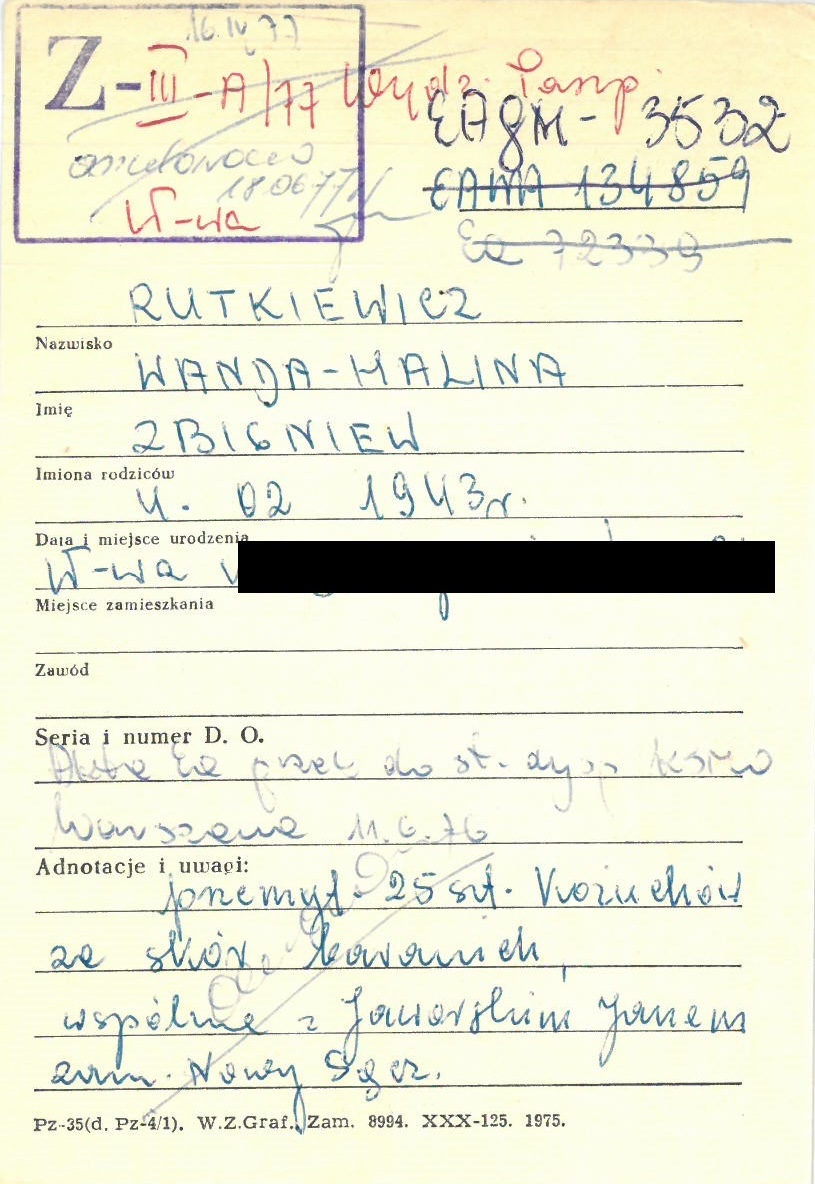 16.IV.77
Z-III-A/77 Wydz. Paszp.
EAGM- 3532
anulowano
18.06.77
EAMA 134859
W-wa
Ea 72339
RUTKIEWICZ
Nazwisko
WANDA-HALINA
Imię
ZBIGNIEW
Imiona rodziców
4. 02 1943r.
Data i miejsce urodzenia
W-wa
Miejsce zamieszkania
Zawód
Seria i numer D. O.
Ea przek. do st. dysp. KSMO
Warszawa 11.6.76
Adnotacje i uwagi:
przemyt 25 szt. Kożuchów
ze skór baranich,
wspólnie z Jaworskim Janem
zam. Nowy Sącz.
Pz-35(d. Pz-4/1). W.Z.Graf. Zam. 8994. XXX-125. 1975.